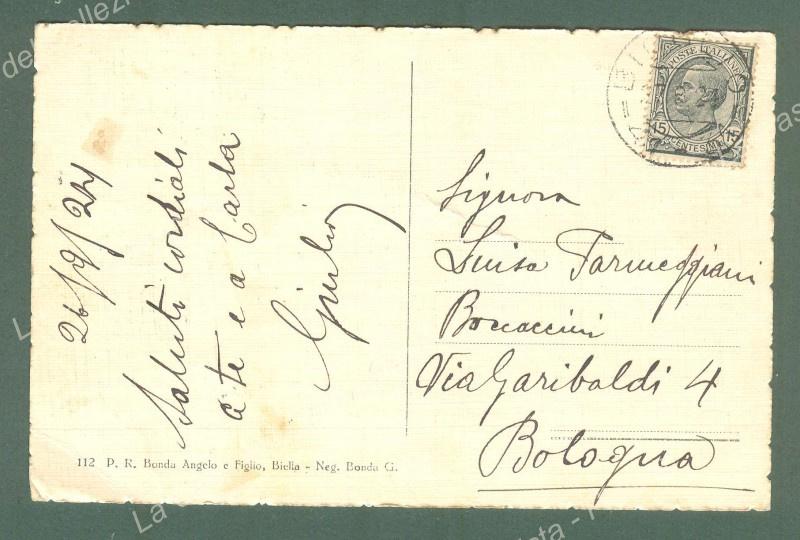 26/9/24
Saluti cordiali
a te e a Carla
Giulio
112 P. R. Bonda Angelo e Figlio, Biella - Neg. Bonda G.
POSTE ITALIANE
15 CENTESIMI 15
Signora
Luisa Parmeggiani
Boccaccini
Via Garibaldi 4
Bologna